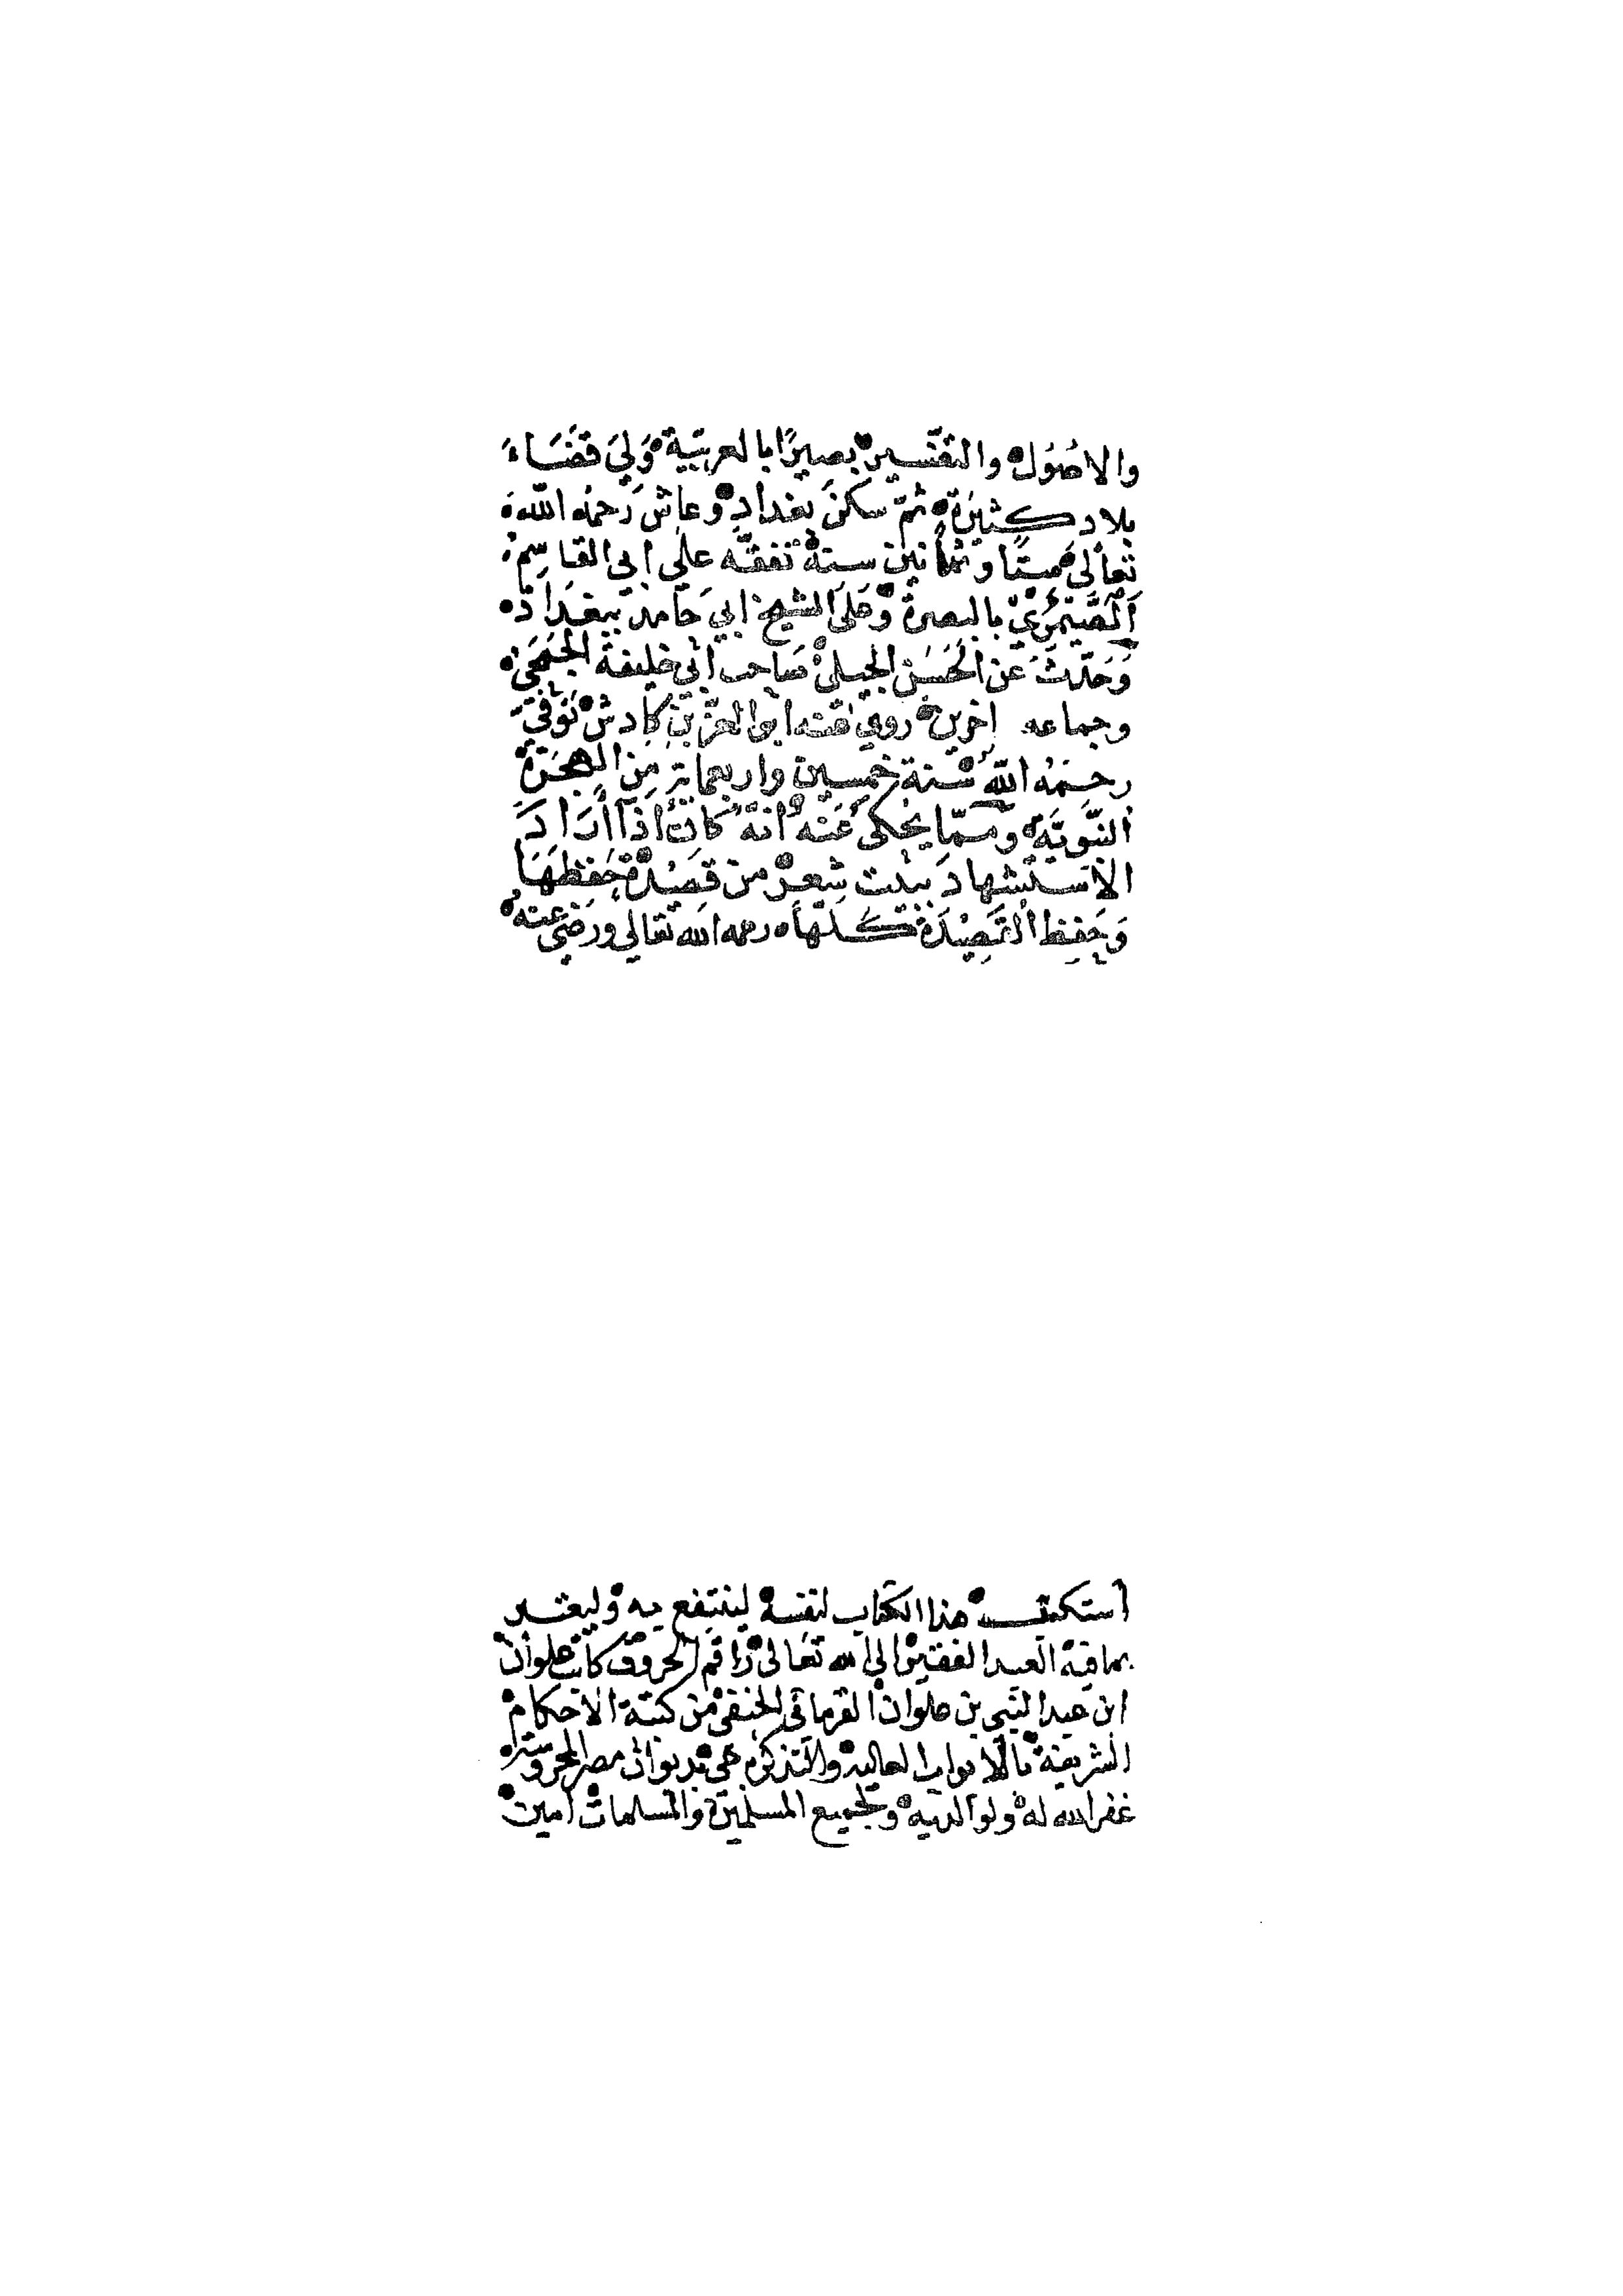 والاصُوُل والتفسير بصيرًا بالعربيّة وَلِيَ قضَاءَ
بلاد كثيرَة ثمّ سكنَ بغداد وعاش رَحمُه اللّه
تعالى ستًا وثمانين سنة تفقّه على ابي القاسِم
اَلصَّيْمَرِيّ بالبصرة وَعَلىَ الشيخ ابي حَامد ببغدَاد
وَحَدّثَ عَن الحَسَن الجبلي صَاحب ابي خليفة الجُمَحِيّ
وجماعه اخرين روي عنه ابوا العزّ بن كادش تُوَفّيَ
رحمَهُ اللّهُ سَنة خمسين واربعماية مِنَ الهجرَة
النبّويَّة وممّا يُحكى عَنه انهُ كان اذَا أرَادَ
الاستشهادَ ببيت شِعر من قصِيْدة حَفظهَا
وَحَفِظ القَصِيْدَة كلّهَا رحمه الله تعالى ورَضي عنه
استكتب هذا الكتاب لنفسه لينتفع به وليعتبر
بما فيه العبد الفقير الى الله تعَالى رَاقم الحروف كاتب علوان
ابن عبد النبي بن علوان القرماني الحنفي من كتبة الاحكام
الشريفة بالابواب العاليه والتذكره جي بديوان مصر المحروسة
غفر الله له ولوالديه ولجميع المسلمين والمسلمات امين